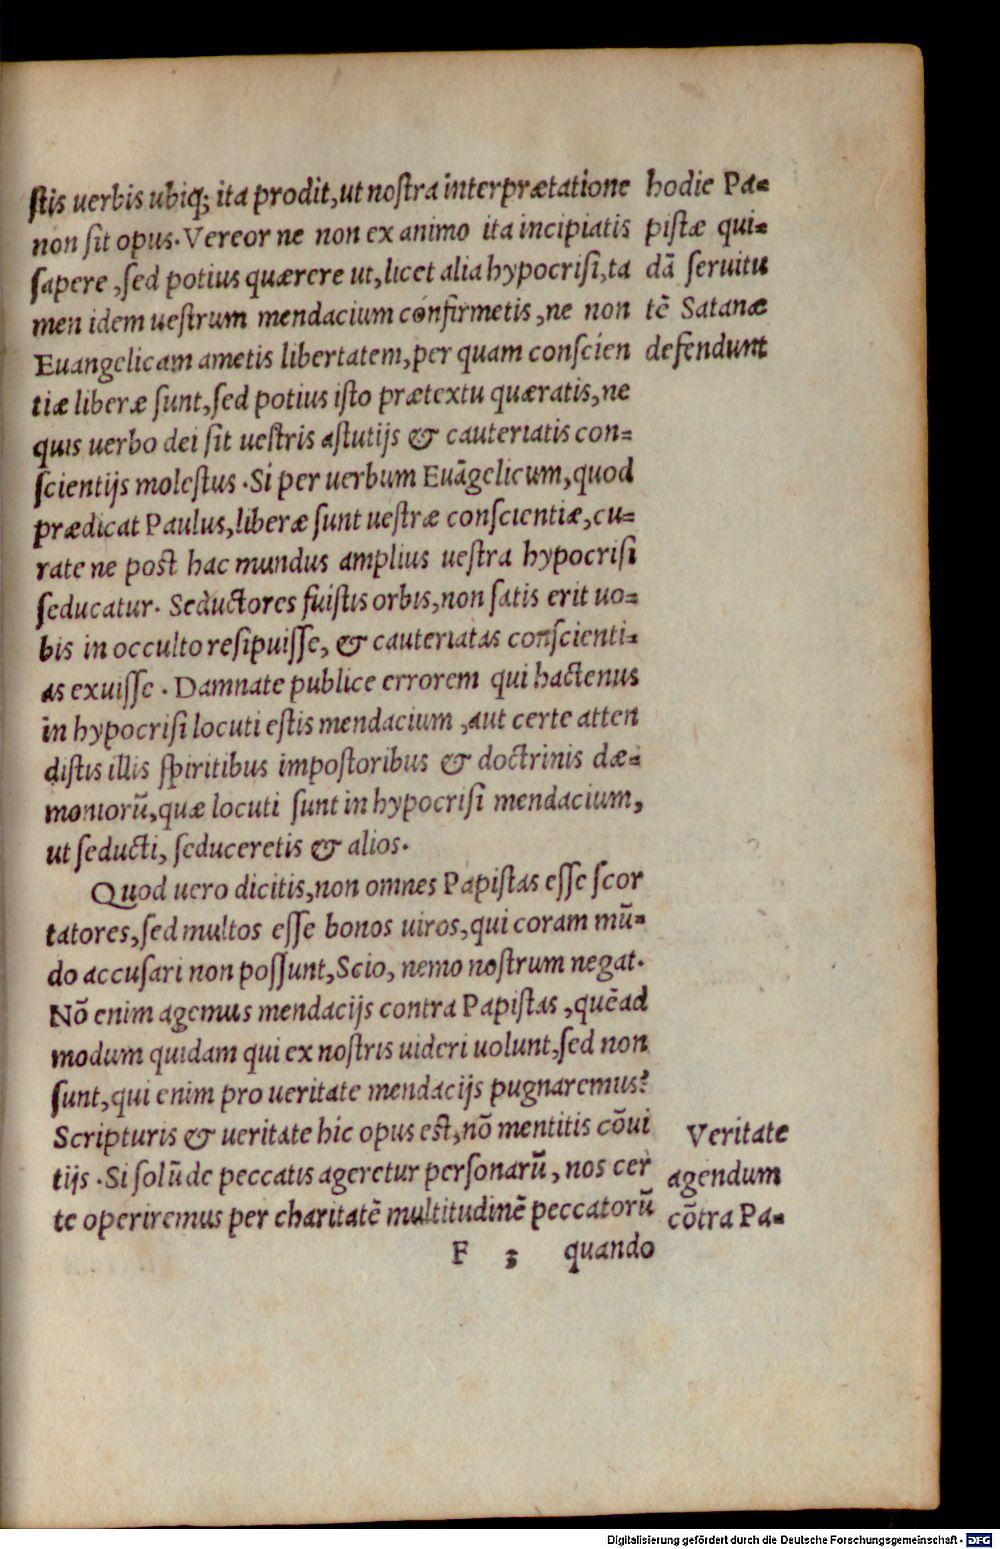 ſtis uerbis ubiq; ita prodit,ut noſtra interprætatione
non ſit opus.Vereor ne non ex animo ita incipiatis
ſapere ,ſed potius quærere ut,licet alia hypocriſi,ta
men idem ueſtrum mendacium cõnfirmetis ,ne non
Euangelicam ametis libertatem,per quam conſcien
tiæ liberæ ſunt,ſed potius iſto prætextu quæratis,ne
quis uerbo dei ſit ueſtris aſtutijs & cauteriatis con=
ſcientijs moleſtus .Si per uerbum Euãgelicum,quod
prædicat Paulus,liberæ ſunt ueſtræ conſcientiæ,cu=
rate ne poſt hac mundus amplius ueſtra hypocriſi
ſeducatur. Seductores fuiſtis orbis,non ſatis erit uo=
bis in occulto reſipuiſſe, & cauteriatas conſcienti=
as exuiſſe . Damnate publice errorem qui hactenus
in hypocriſi locuti eſtis mendacium ,aut certe atten
diſtis illis ſpiritibus impoſtoribus & doctrinis dæ=
moniorũ,quæ locuti ſunt in hypocriſi mendacium,
ut ſeducti, ſeduceretis & alios.
Quod uero dicitis,non omnes Papiſtas eſſe ſcor
tatores,ſed multos eſſe bonos uiros,qui coram mũ=
do accuſari non poſſunt,Scio, nemo noſtrum negat.
Nõ enim agemus mendacijs contra Papiſtas ,quẽad
modum quidam qui ex noſtris uideri uolunt,ſed non
ſunt,qui enim pro ueritate mendacijs pugnaremus?
Scripturis & ueritate hic opus eſt,nõ mentitis cõui
tijs .Si ſolũ de peccatis ageretur perſonarũ, nos cer
te operiremus per charitatẽ multitudinẽ peccatorũ
F 3 quando
hodie Pa=
piſtæ qui=
dã ſeruitu
tẽ Satanæ
defendunt
Veritate
agendum
cõtra Pa=
Digitalisierung gefördert durch die Deutsche Forschungsgemeinschaft - DFG